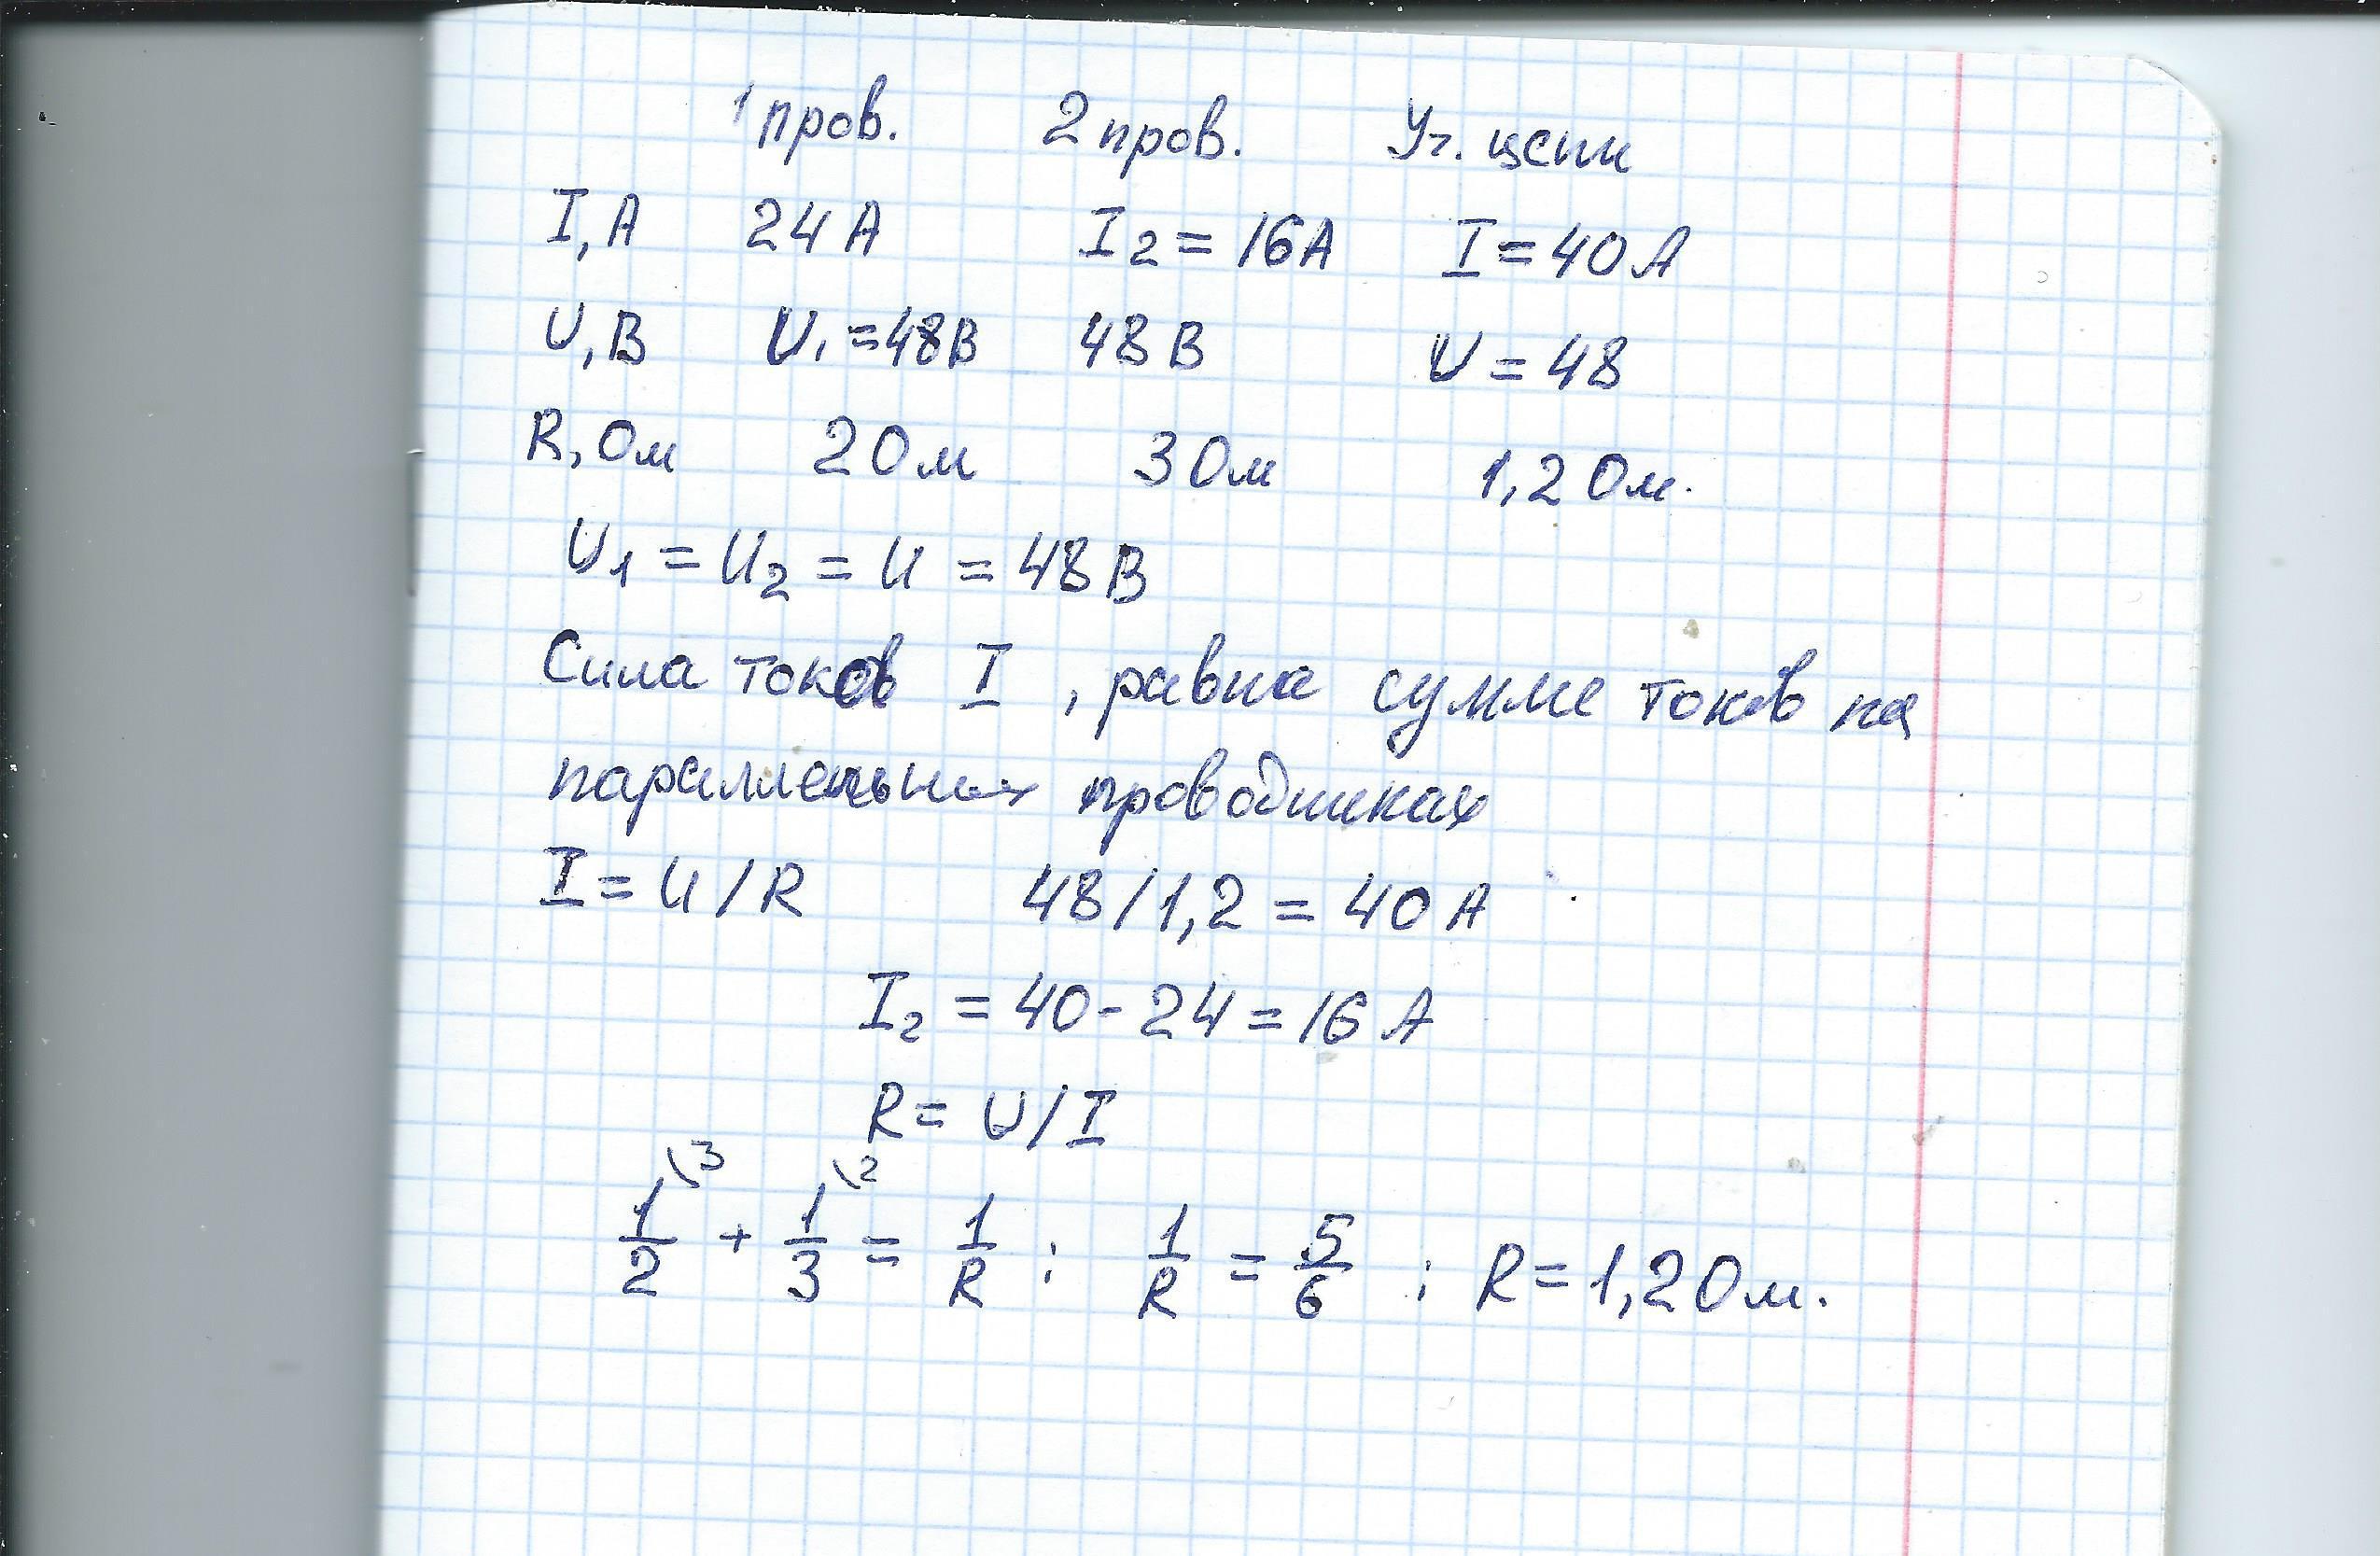 1 пров. 2 пров. Уч. цепи
I, А 24 А I₂ = 16А I = 40 А
U, В U₁ = 48В 48 В U = 48
R, Ом 2 Ом 3 Ом 1,2 Ом.
U₁ = U₂ = U = 48 В
Сила токов I , равна сумме токов на
параллельных проводниках
I = U / R 48 / 1,2 = 40 А
I₂ = 40 - 24 = 16 А
R = U / I
\3 \2
1/2 + 1/3 = 1/R ; 1/R = 5/6 ; R = 1,2 Ом.